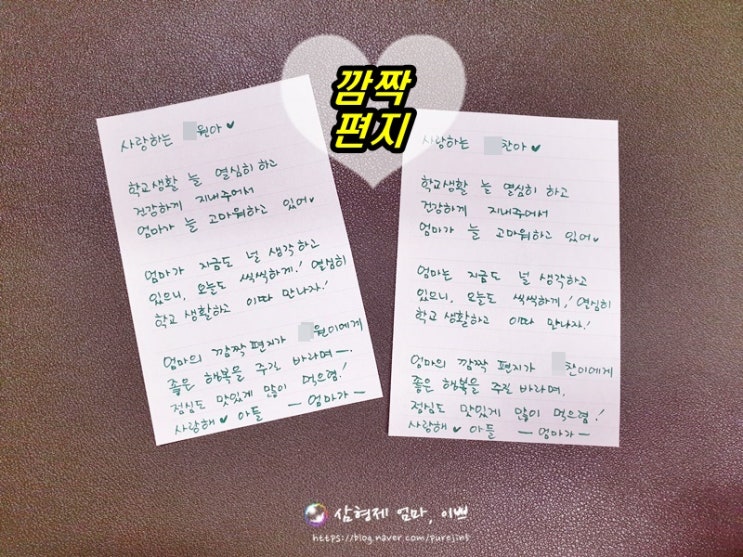 깜짝
편지
사랑하는 원아♥
학교생활 늘 열심히 하고
건강하게 지내주어서
엄마가 늘 고마워하고 있어♥
엄마가 지금도 널 생각하고
있으니, 오늘도 씩씩하게! 열심히
학교 생활하고 이따 만나자!
엄마의 깜짝 편지가 원이에게
좋은 행복을 주길 바라며—.
점심도 맛있게 많이 먹으렴!
사랑해♥ 아들 — 엄마가 —
사랑하는 찬아♥
학교생활 늘 열심히 하고
건강하게 지내주어서
엄마가 늘 고마워하고 있어♥
엄마는 지금도 널 생각하고
있으니, 오늘도 씩씩하게! 열심히
학교 생활하고 이따 만나자!
엄마의 깜짝 편지가 찬이에게
좋은 행복을 주길 바라며,
점심도 맛있게 많이 먹으렴!
사랑해♥ 아들 — 엄마가 —
삼형제 엄마, 이쁘
https://blog.naver.com/purejin5